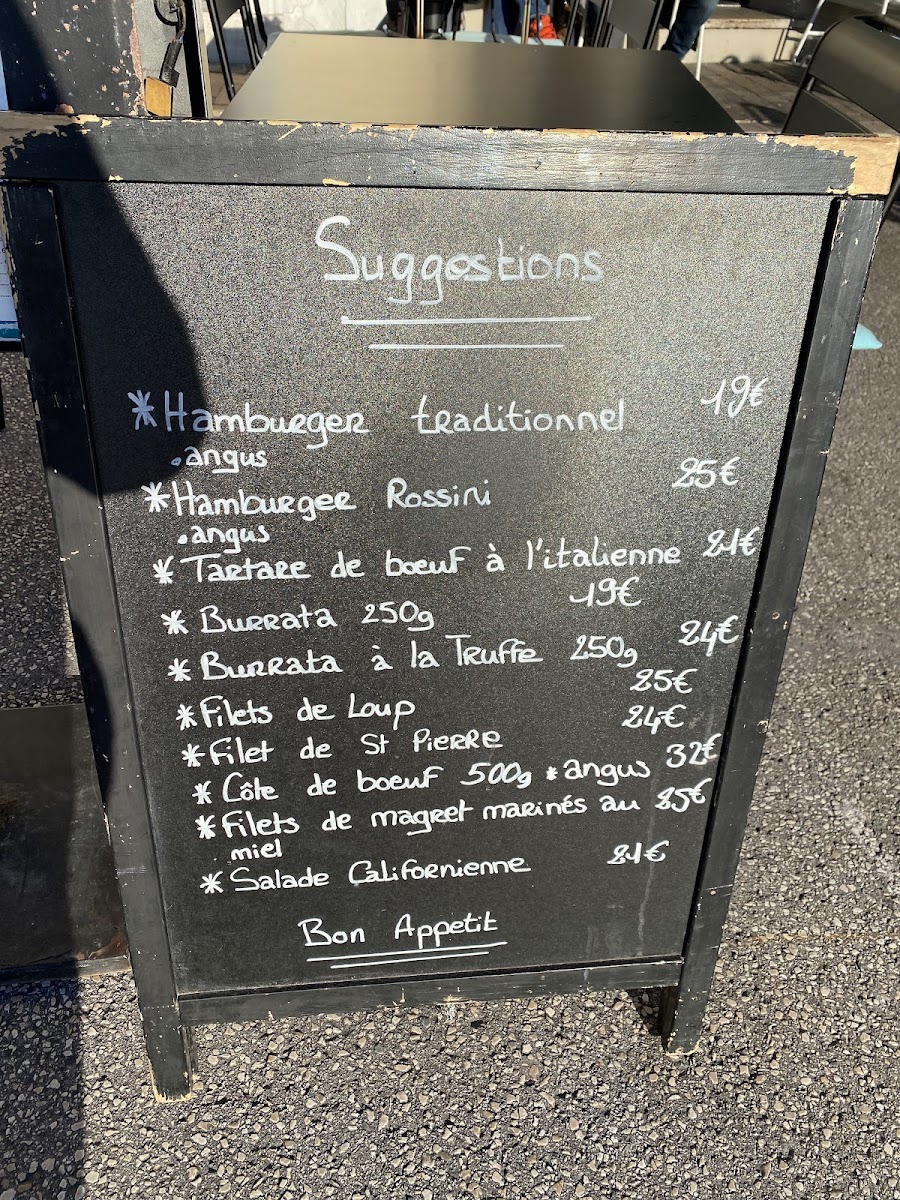 Suggestions
*Hamburger traditionnel 19€
.angus
*Hamburger Rossini 25€
.angus
* Tartare de boeuf à l'italienne 21€
* Burrata 250g 19€
* Burrata à la Truffe 250g 24€
* Filets de Loup 25€
* Filet de St Pierre 24€
* Côte de boeuf 500g * angus 32€
* Filets de magret marinés au 25€
miel
* Salade Californienne 21€
Bon Appetit